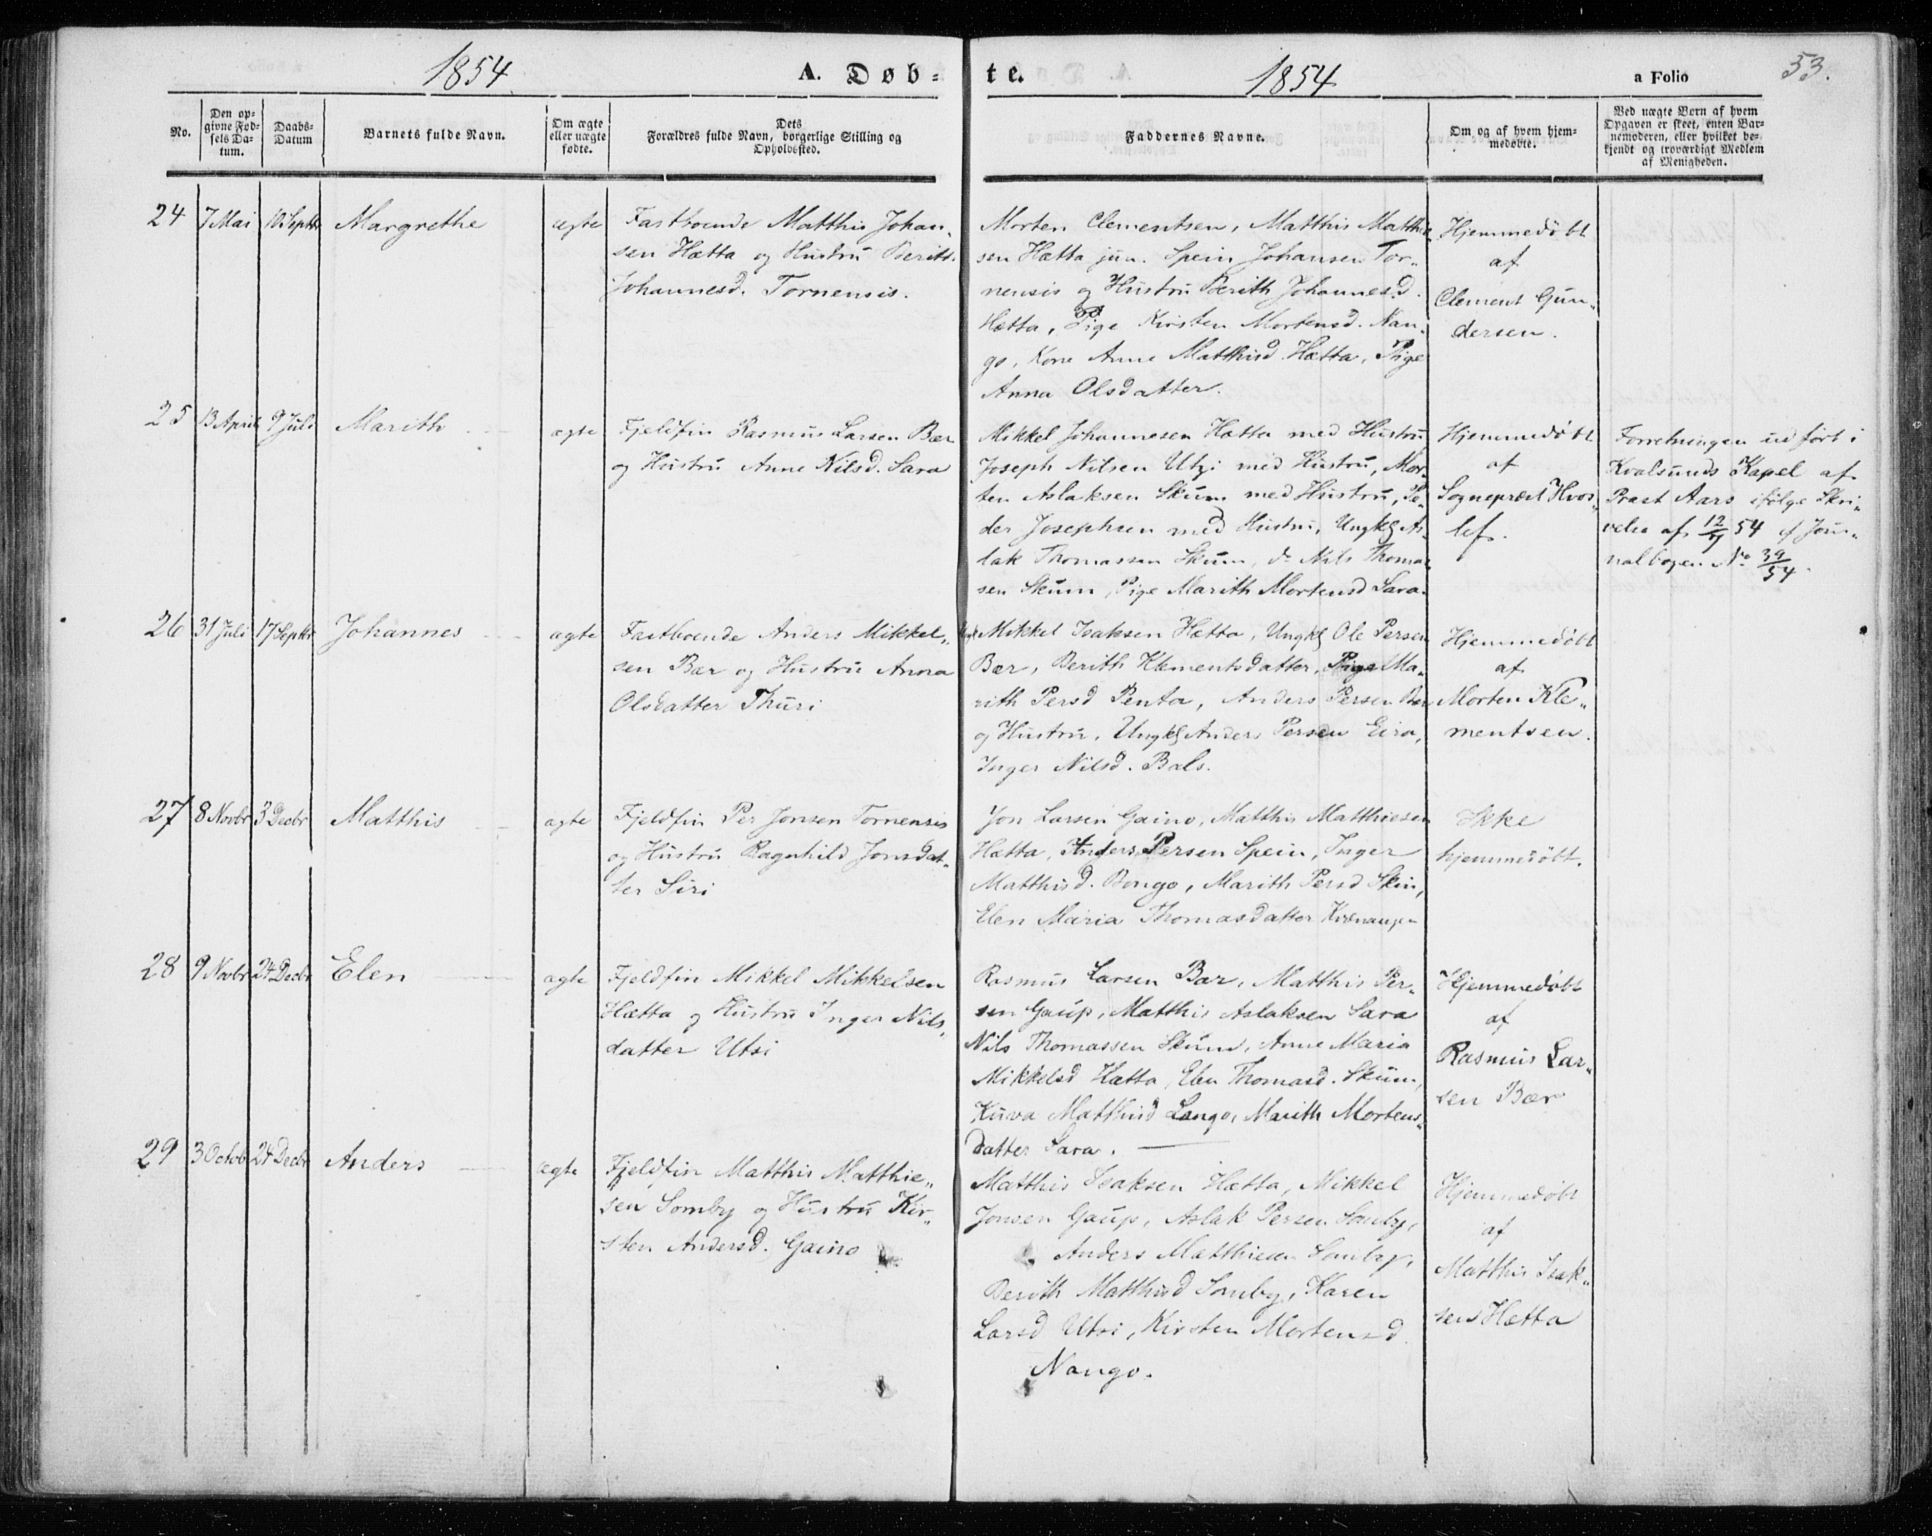 1854 A. Døb-
te. 1854 a Folio 53.
No.
Den op-
givne Fød-
sels Da-
tum.
Daabs-
Datum
Barnets fulde Navn.
Om ægte
eller uægte
fødte.
Dets
Forældres fulde Navn, borgerlige Stilling og
Opholdssted.
Faddernes Navne.
Om og af hvem hjem-
medøbte.
Ved uægte Børn af hvem
Opgaven er skeet, enten Bar-
nemoderen, eller hvilket be-
kjendt og troværdigt Medlem
af Menigheden.
24 7 Mai 10 Septbr Margrethe ægte
Fastboende Matthis Johan-
sen Hætta og Hustru Berith
Johannesd. Tornensis.
Morten Clementsen, Matthis Matthie-
sen Hætta jun. Spein Johansen Tor-
nensis og Hustru Berith Johannesd.
Hætta, Pige Kirsten Mortensd. Nan-
go, Kone Anne Matthisd Hætta, Pige
Anna Olsdatter.
Hjemmedøbt
af
Clement Gun-
dersen.
25 13 April 9 Juli Marith ægte
Fjeldfin Rasmus Larsen Bær
og Hustru Anne Nilsd. Sara
Mikkel Johannesen Hætta med Hustru
Joseph Nilsen Utzi med Hustru, Mor-
ten Aslaksen Skum med Hustru, Pe-
der Josephsen med Hustru, Ungkl As-
lak Thomassen Skum, do Nils Thomas-
sen Skum, Pige Marith Mortensd Sara.
Hjemmedøbt
af
Sognepræst Hvos-
lef.
Forretningen udført i
Kvalsunds Kapel af
Præst Aars ifølge Skri-
velse af 12/9 54 cf Jour-
nalbogen No 39/54.
26 31 Juli 17 Septbr Johannes ægte
Fastboende Anders Mikkel-
sen Bær og Hustru Anna
Olsdatter Thuri
Mikkel Isaksen Hætta, Ungkl Ole Persen
Bær, Berith Klementsdatter, Pige Ma-
rith Persd Penta, Anders Persen Bær
og Hustru, Ungkl Anders Persen Eira,
Inger Nilsd. Bals.
Hjemmedøbt
af
Morten Kle-
mentsen.
27 8 Novbr 3 Decbr Matthis ægte
Fjeldfin Per Jonsen Tornensis
og Hustru Ragnhild Jonsdat-
ter Siri
Jon Larsen Gaino, Matthis Matthiesen
Hætta, Anders Persen Spein, Inger
Matthisd. Bongo, Marith Persd Skin,
Elen Maria Thomasdatter Kvænangen
Ikke
hjemmedøbt.
28 9 Novbr 24 Decbr Elen ægte
Fjeldfin Mikkel Mikkelsen
Hætta og Hustru Inger Nils-
datter Utsi
Rasmus Larsen Bær, Matthis Per-
sen Gaup, Matthis Aslaksen Sara
Nils Thomassen Skum, Anne Maria
Mikkelsd Hætta, Elen Thomasd. Skum,
Kuva Matthisd Lango, Marith Mortens-
datter Sara.
Hjemmedøbt
af
Rasmus Lar-
sen Bær
29 3 Octobr 24 Decbr Anders ægte
Fjeldfin Matthis Matthie-
sen Somby og Hustru Kir-
sten Andersd. Gaino
Matthis Isaksen Hætta, Mikkel
Jonsen Gaup, Aslak Persen Somby,
Anders Matthiesen Somby,
Berith Matthisd Somby, Karen
Larsd Utsi, Kirsten Mortensd
Nango.
Hjemmedøbt
af
Matthis Isak-
sen Hætta